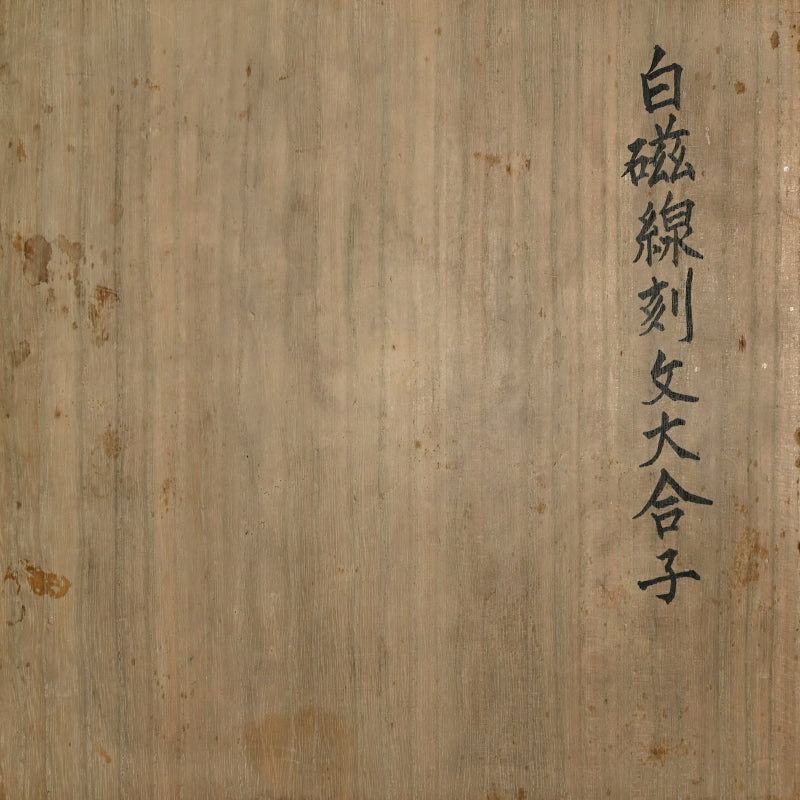 白磁線刻文大合子